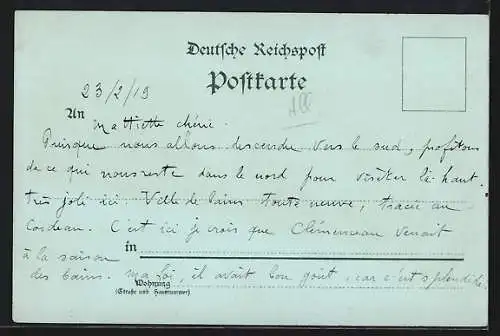 Deutsche Reichspost
Postkarte
23/2/19
An Ma Miette chérie.
Puisque nous allons descendre vers le sud, profitons
de ce qui nous reste dans le nord pour visiter là-haut.
très joli ici Ville de bains toute neuve, tracée au
cordeau. C'est ici je crois que Clémenceau venait
in
à la saison
des bains. Ma foi, il avait bon goût, car c'est splendide.
Wohnung
(Straße und Hausnummer)